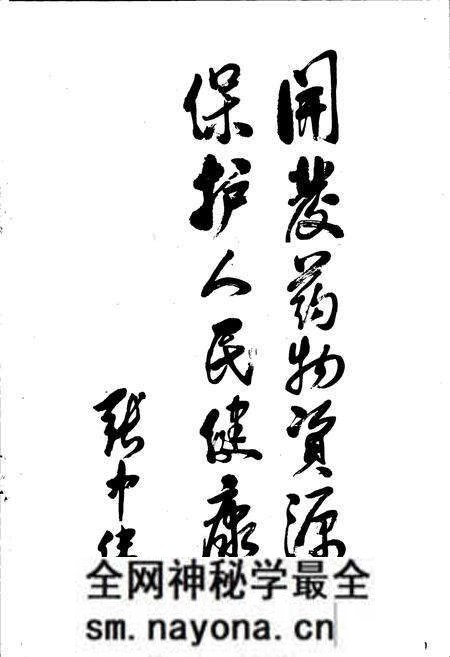 開發药物資源
保护人民健康
张中
全网神秘学最全
sm.nayona.cn